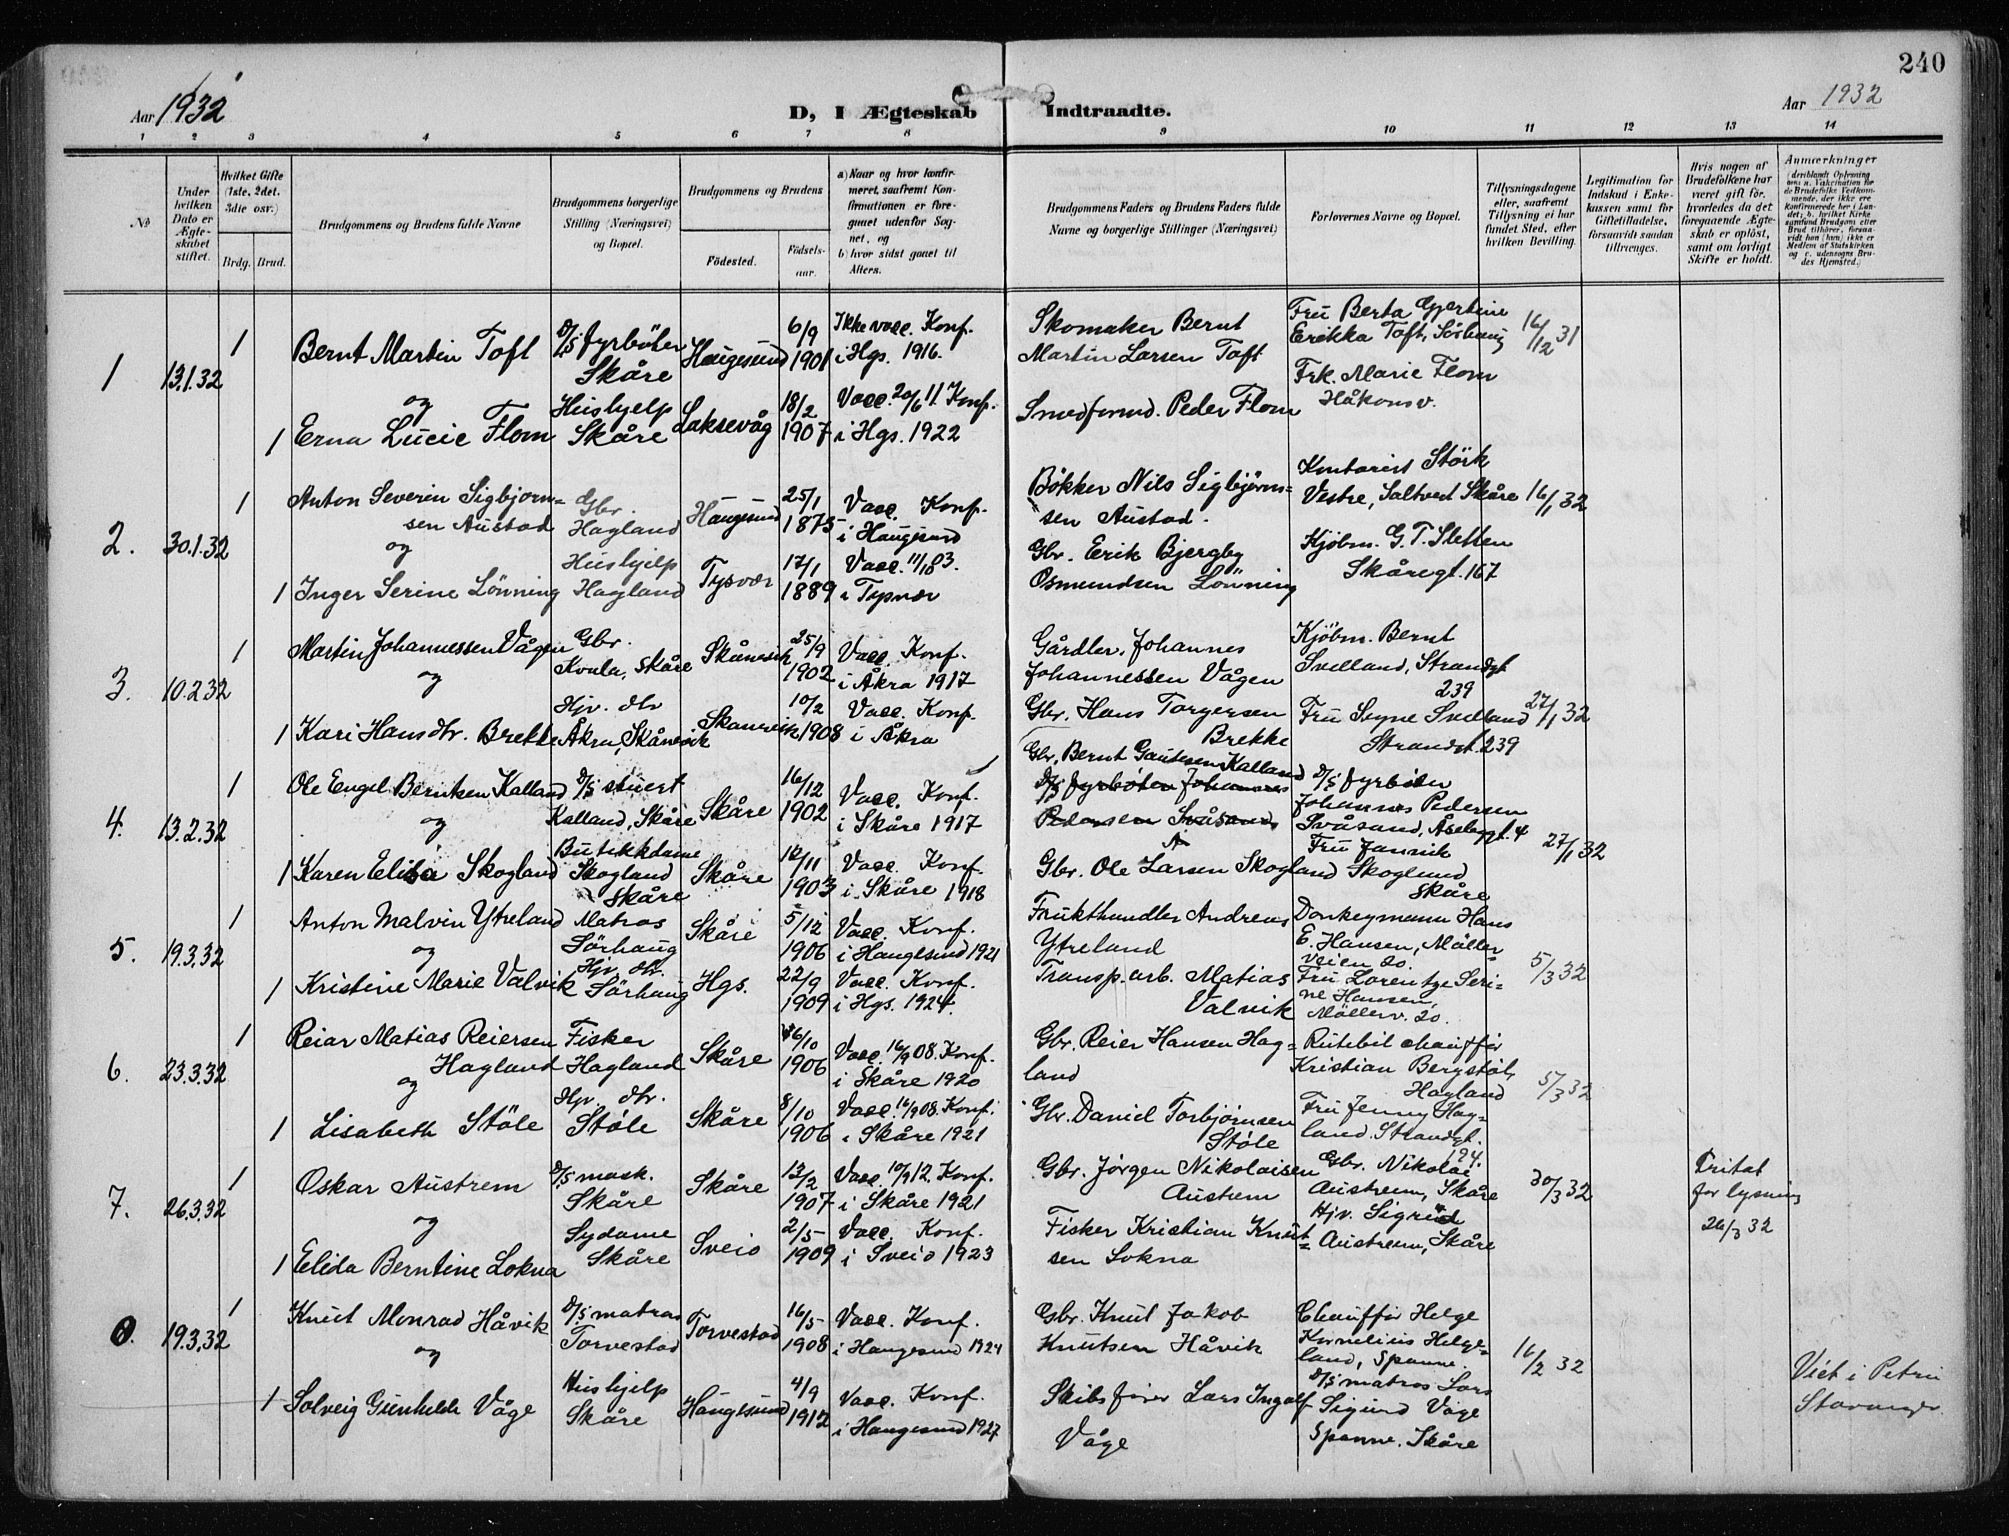 240
Aar 1932
D, I Ægteskab Indtraadte.
Aar 1932
1 2 3 4 5 6 7 8 9 10 11 12 13 14
No
Under hvilken Dato er Ægteskabet stiftet.
Hvilket Gifte (1ste, 2det, 3die osv.)
Brdg. Brud.
Brudgommens og Brudens fulde Navne
Brudgommens borgerlige Stilling (Næringsvei) og Bopæl.
Brudgommens og Brudens
Fødested.
Fødselsaar.
a) Naar og hvor konfirmeret, saafremt Konfirmationen er foregaaet udenfor Sognet, og
b) hvor sidst gaaet til Alters.
Brudgommens Faders og Brudens Faders fulde Navne og borgerlige Stillinger (Næringsvei)
Forlovernes Navne og Bopæl.
Tillysningsdagene eller, saafremt Tillysning ei har fundet Sted, efter hvilken Bevilling.
Legitimation for Indskud i Enkekassen samt for Giftetilladelse, forsaavidt saadan tiltrænges.
Hvis nogen af Brudefolkene har været gift før, hvorledes da det foregaaende Ægteskab er opløst, samt om lovligt Skifte er holdt.
Anmærkninger
1 13.1.32
1 Bernt Martin Toft D/S fyrböter Skåre Haugesund 6/9 1901 Ikke vacc. Konf. i Hgs. 1916.
Skomaker Bernt Martin Larsen Toft
Fru Berta Gjertine Erikka Toft, Sørhaug 16/12 31
og
1 Erna Lucie Flom Hushjelp Skåre Laksevåg 18/2 1907 Vacc. 20/6 11. Konf. i Hgs. 1922
Smedformd. Peder Flom
Frk. Marie Flom Håkonsv.
2. 30.1.32
1 Anton Severin Sigbjørnsen Austad Gbr. Hagland Haugesund 25/1 1875 Vacc. Konf. i Haugesund
Bökker Nils Sigbjørnsen Austad.
Kontorist Störk Vestre, Saltveit Skåre 16/1 32
og
1 Inger Serine Lönning Hushjelp Hagland Tysvær 17/1 1889 Vacc. 11/1 83. i Tysvær
Gbr. Erik Bjergby Osmundsen Lönning
Kjøbm. G. T. Sletten Skåregt. 167
3. 10.2.32
1 Martin Johannessen Vågen Gbr. Kvala, Skåre Skånevik 25/9 1902 Vacc. Konf. i Åkra 1917
Gårdbr. Johannes Johannessen Vågen
Kjøbm. Bernt Svelland, Strandgt. 239
og
1 Kari Hansdtr. Brekke Hjv. dtr Åkra, Skånevik Skånevik 10/2 1908 Vacc. Konf. i Åkra
Gbr. Hans Torgersen Brekke
Fru Signe Svelland Strandgt. 239 27/1 32
4. 13.2.32
1 Ole Engel Berntsen Kalland D/S stuert Kalland, Skåre Skåre 16/12 1902 Vacc. Konf. i Skåre 1917
Gbr. Bernt Gautesen Kalland
D/S fyrbøter Johannes Pedersen Svåsand
D/S fyrbøter Johannes Pedersen Svåsand, Åsbyggt. 4
og
1 Karen Elise Skogland Butikkdame Skogland Skåre Skåre 12/11 1903 Vacc. Konf. i Skåre 1918
Gbr. Ole Larsen Skogland
Fru Janvik Skoglund Skåre 27/1 32
5. 19.3.32
1 Anton Malvin Ytreland Matros Sörhaug Skåre 5/12 1906 Vacc. Konf. i Haugesund 1921
Frukthandler Andreas Ytreland
Donkeymann Hans E. Hansen, Møllerveien 20.
og
1 Kristine Marie Valvik Hjv. dtr. Sörhaug Hgs. 22/9 1909 Vacc. Konf. i Hgs. 1924.
Transp. arb. Matias Valvik
Fru Lorentze Serine Hansen, Møllerv. 20. 5/3 32
6. 23.3.32
1 Reiar Matias Reiersen Hagland Fisker Hagland Skåre 26/10 1906 Vacc. 16/9 08. Konf. i Skåre 1920
Gbr. Reier Hansen Hagland
Rutebil chauffør Kristian Bergstøl, Hagland 5/3 32
og
1 Lisabeth Støle Hjv. dtr. Støle Skåre 8/10 1906 Vacc. 16/9 08. Konf. i Skåre 1921
Gbr. Daniel Torbjørnsen Støle
Fru Jenny Hagland. Strandgt. 194.
7. 26.3.32
1 Oskar Austrem D/S mask. Skåre Skåre 12/2 1907 Vacc. 10/9 12. Konf. i Skåre 1921
Gbr. Jørgen Nikolaisen Austrem
Gbr. Nikolai Austrem, Skåre 20/3 32
Fritat for lysning 26/3 32
og
1 Elida Berntine Lokna Sydame Skåre Sveio 2/5 1909 Vacc. Konf. i Sveio 1923
Fisker Kristian Knutsen Lokna
Hjv. Sigrid Austrem, Skåre
8. 19.3.32
1 Knut Monrad Håvik D/S matros Torvestad Torvestad 16/5 1908 Vacc. Konf. i Haugesund 1924
Gbr. Knut Jakob Knutsen Håvik
Chauffør Helge Kornelius Helgeland, Spanne. 16/2 32
og
1 Solveig Gunhilde Våge Hushjelp Skåre Haugesund 4/9 1912 Vacc. Konf. i Haugesund 1927
Skibsfører Lars Ingolf Våge
D/S matros Lars Sigurd Våge Spanne. Skåre
Viet i Petri Stavanger.